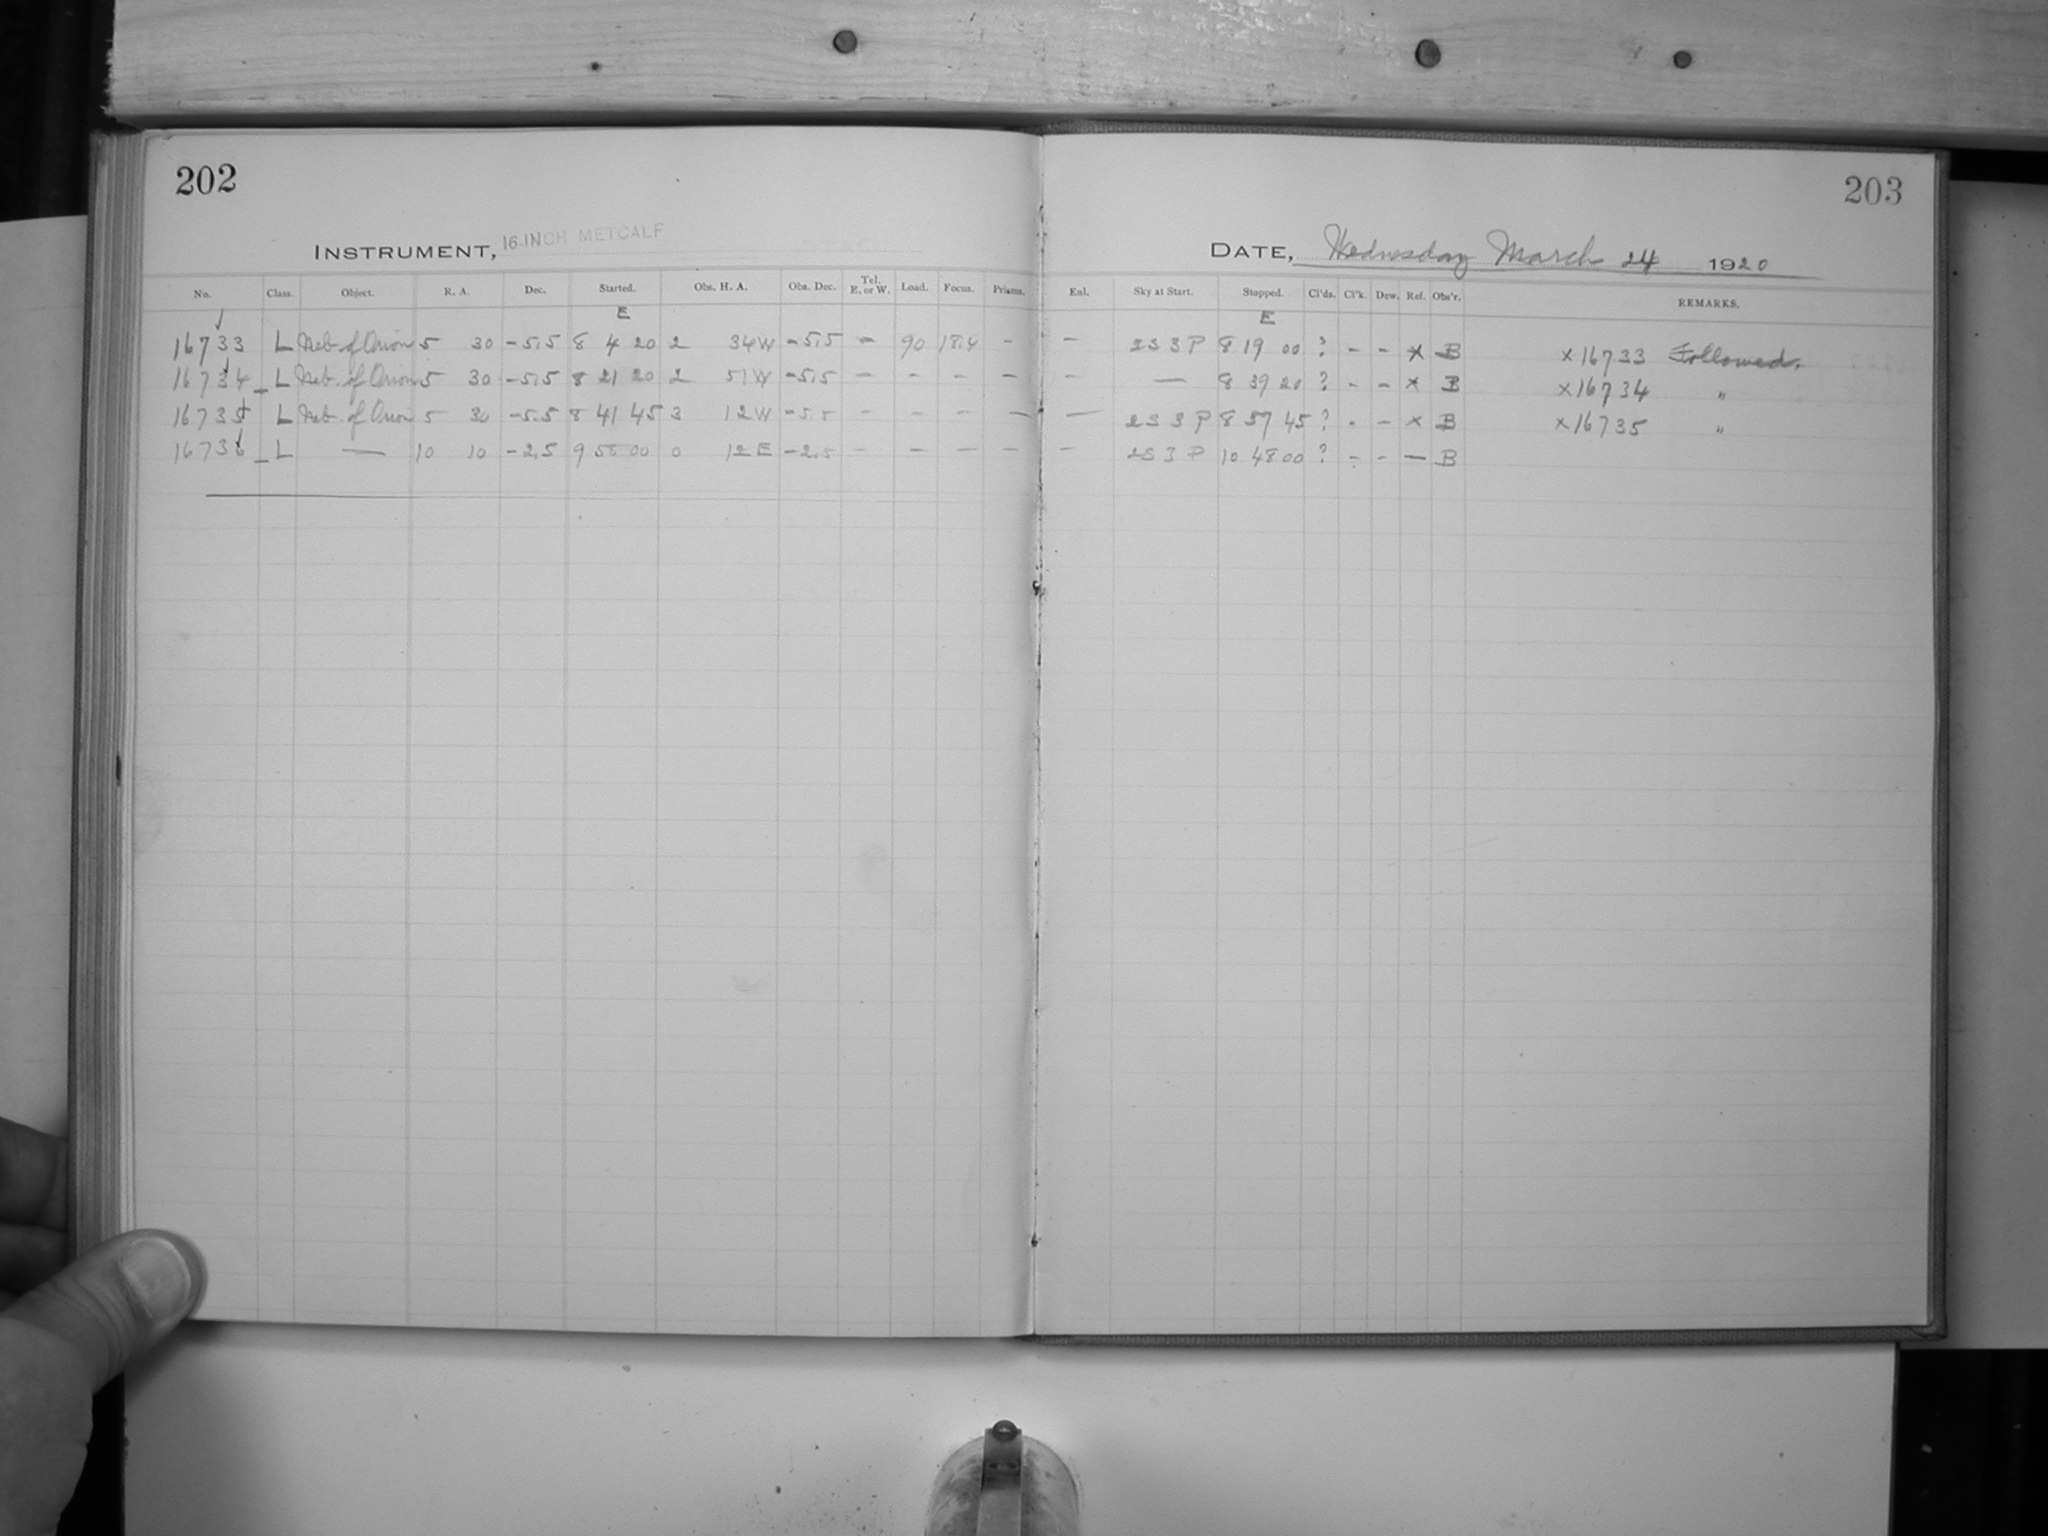 202
203
INSTRUMENT, 16-INCH METCALF
DATE, Wednesday March 24 1920
No. Class. Object. R. A. Dec. Started. Obs. H. A. Obs. Dec. Tel. E. or W. Load. Focus. Prisms. Enl. Sky at Start. Stopped. Cl'ds. Cl'k. Dew. Ref. Obs'r. REMARKS.
E E
16733 L Neb. of Orion 5 30 -5.5 8 4 20 2 34 W -5.5 - 90 18.4 - - 2S 3 P 8 19 00 ? - - x B x 16733 Followed.
16734 L Neb. of Orion 5 30 -5.5 8 21 20 2 51 W -5.5 - - - - - — 8 39 20 ? - - x B x 16734 "
16735 L Neb. of Orion 5 30 -5.5 8 41 45 3 12 W -5.5 - - - - — 2S 3 P 8 57 45 ? - - x B x 16735 "
16736 L — 10 10 -2.5 9 0 12 E -2.5 - - - - - 2S 3 P 10 48 00 ? - - — B